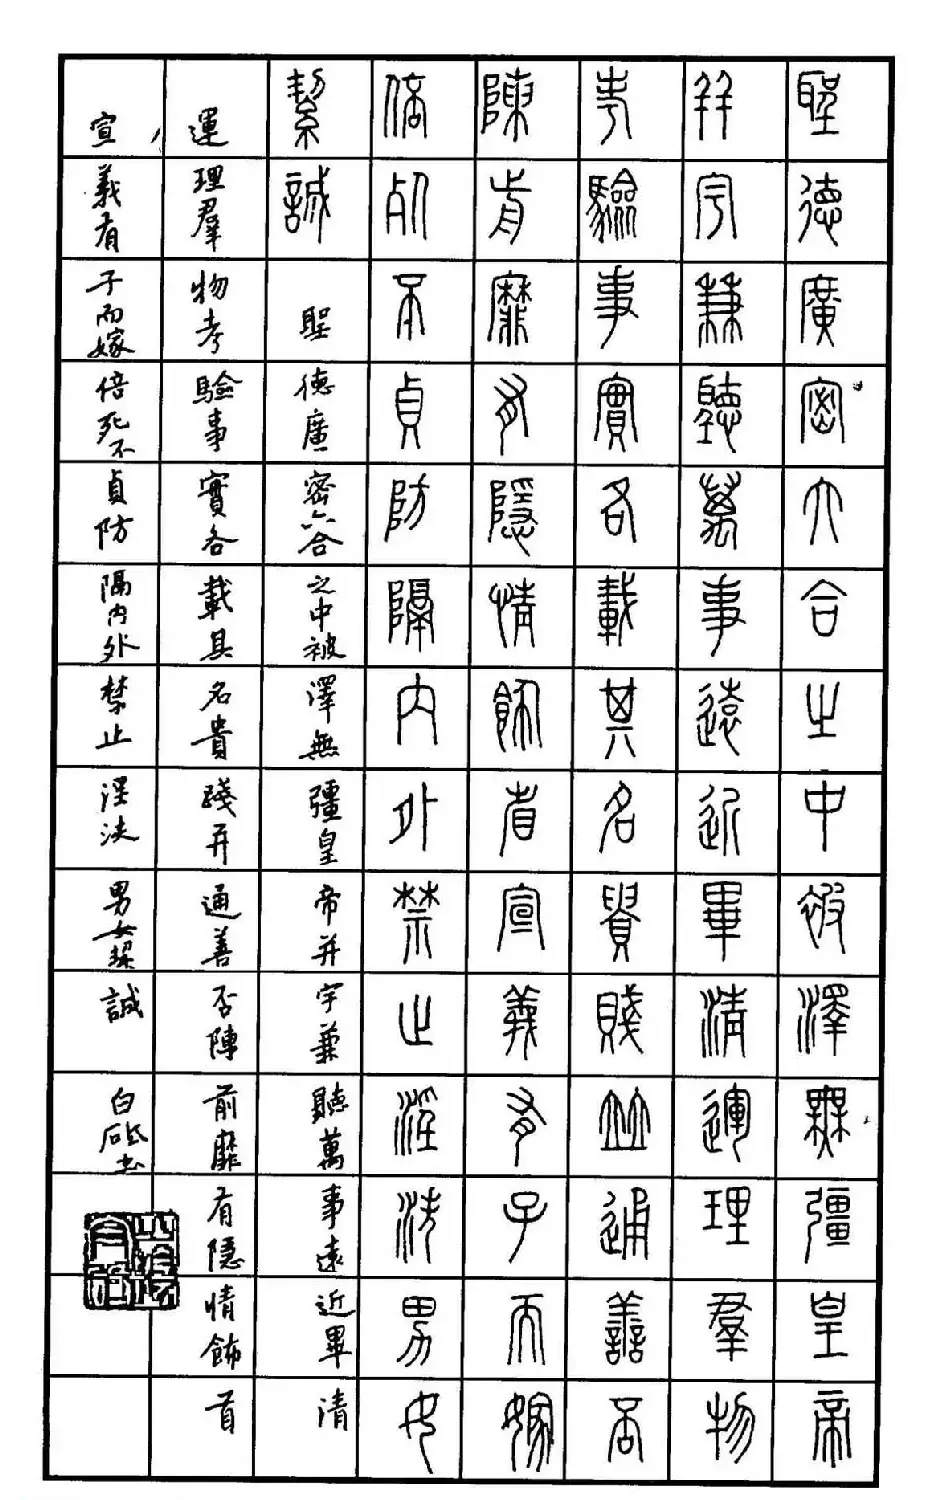 聖德廣密六合之中被澤無疆皇帝
并宇兼聽萬事遠近畢清運理羣物
考驗事實各載其名貴賤並通善否
陳前靡有隱情飾省宣義有子而嫁
倍死不貞防隔內外禁止淫泆男女
絜誠 聖德廣密六合之中被澤無疆皇帝并宇兼聽萬事遠近畢清
運理羣物考驗事實各載其名貴賤并通善否陳前靡有隱情飾首
宣義有子而嫁倍死不貞防隔内外禁止淫泆男女絜誠 白砥書